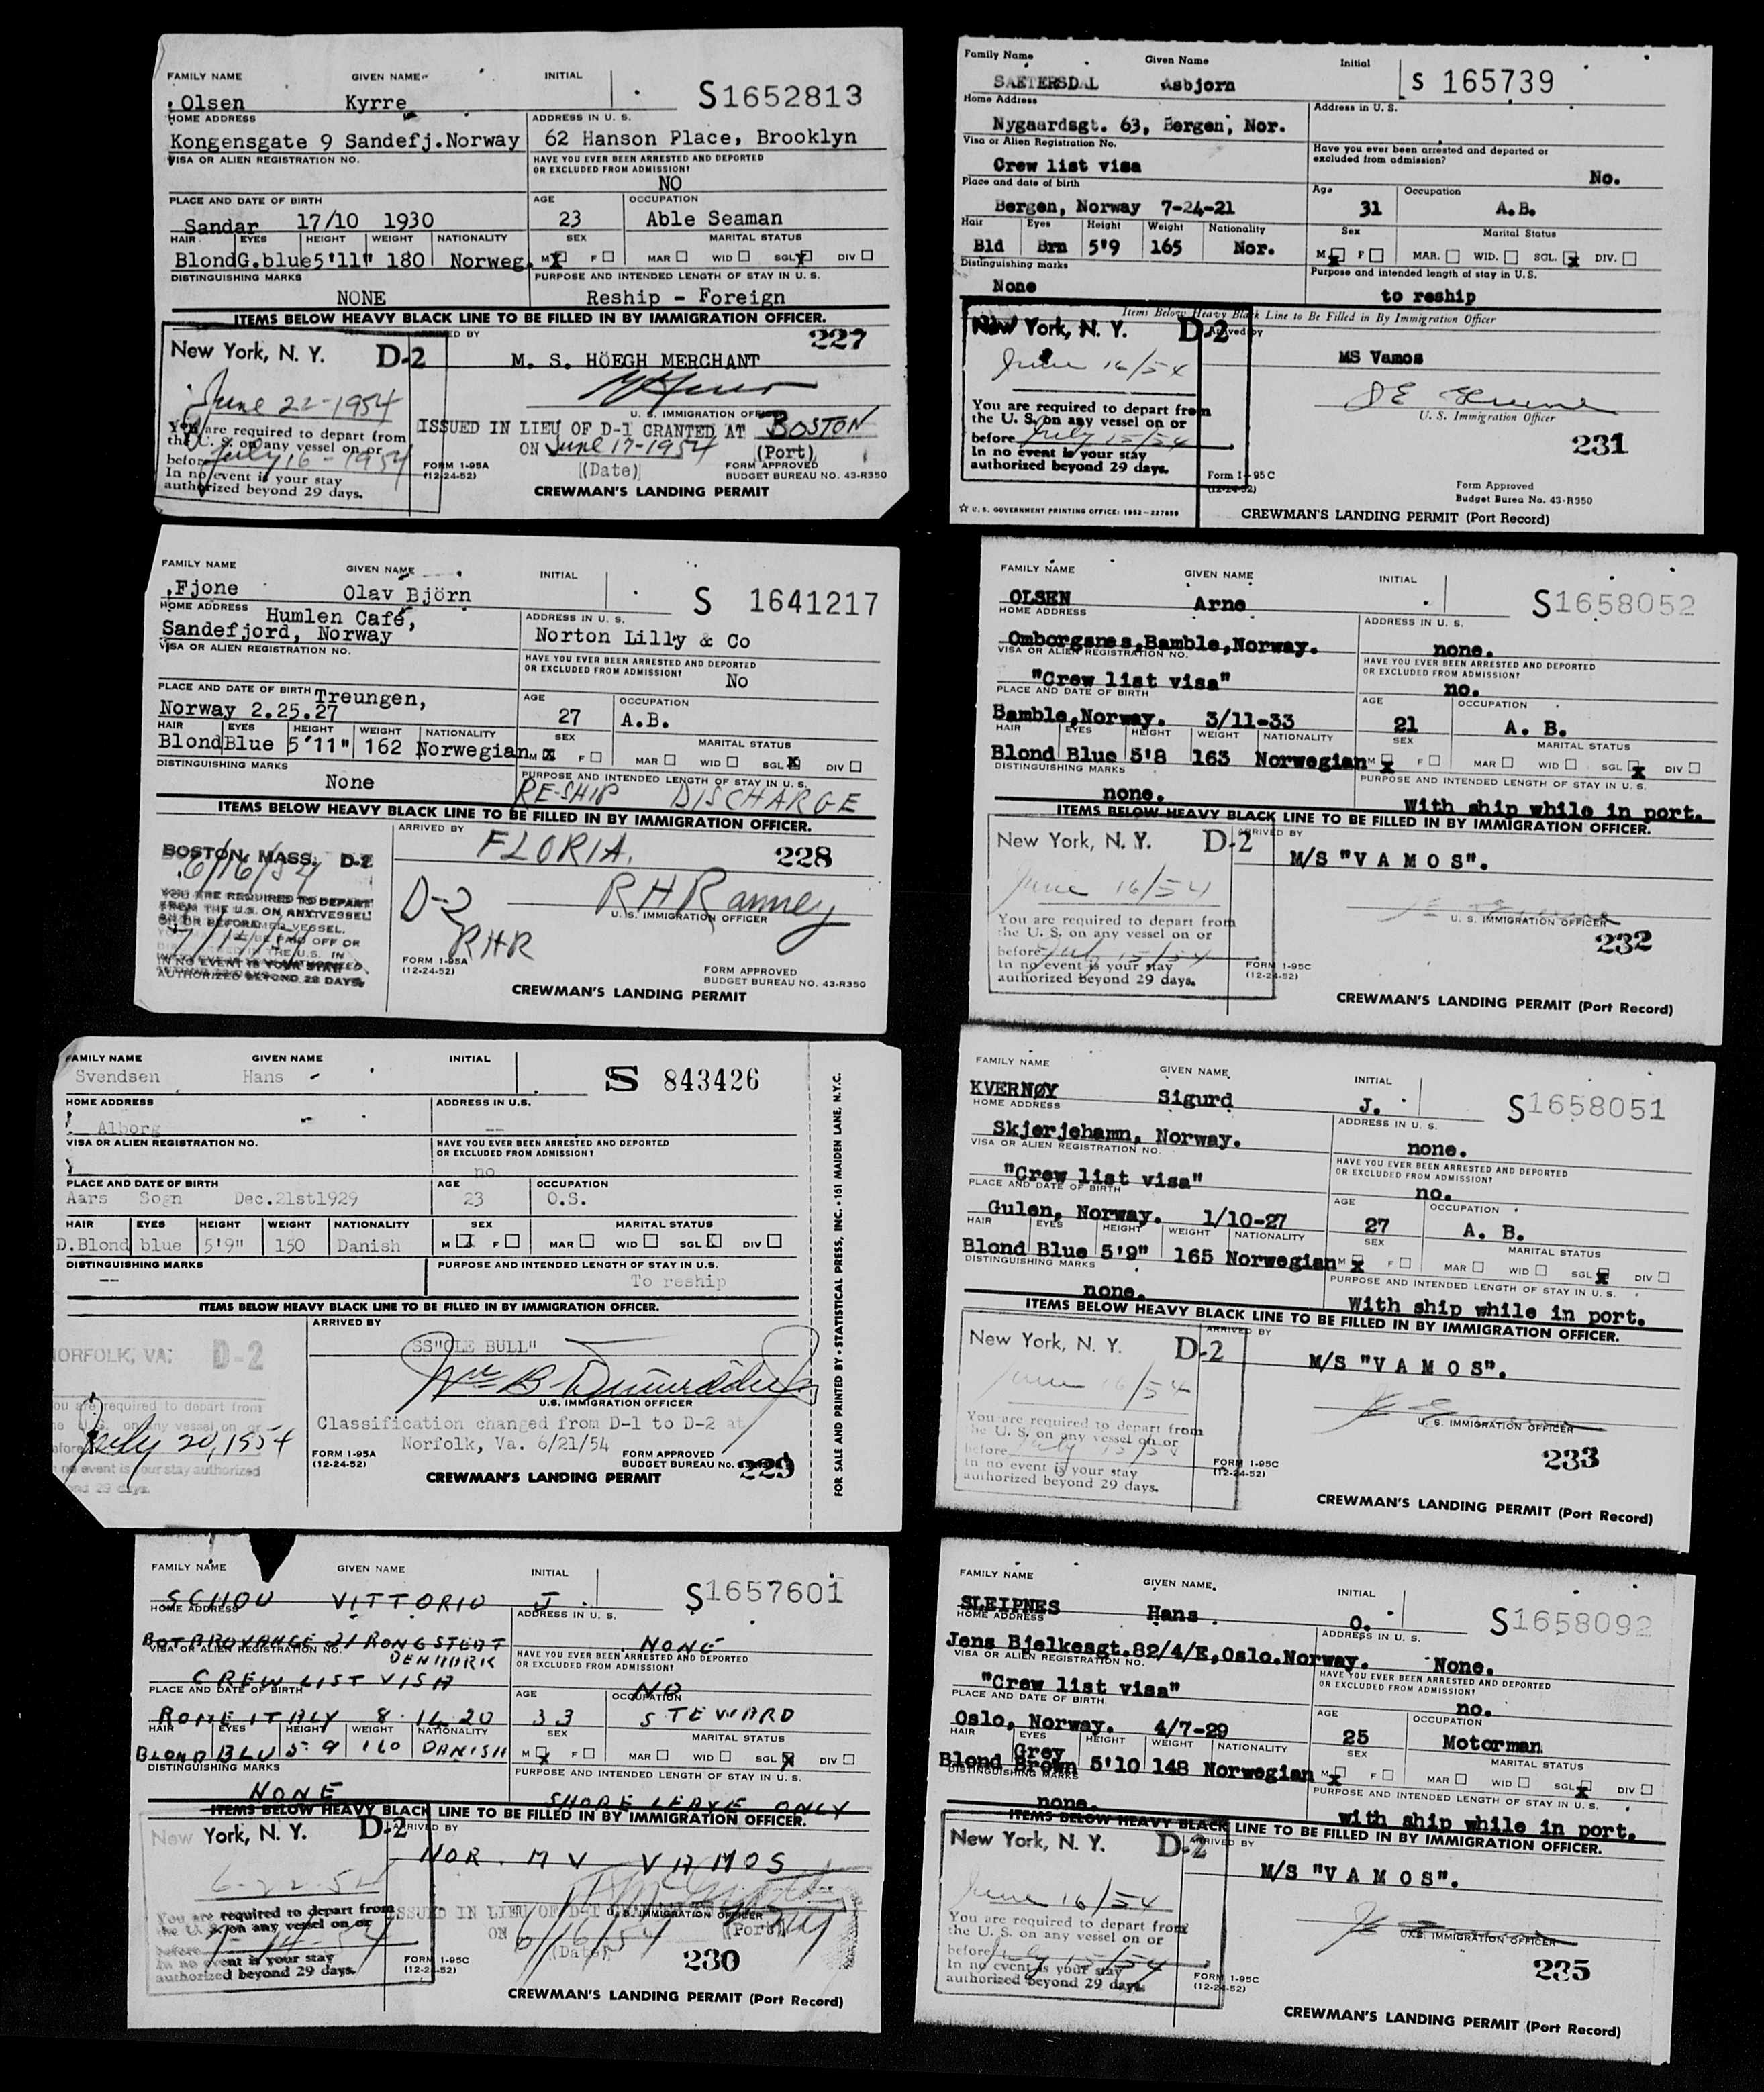 FAMILY NAME GIVEN NAME INITIAL
Olsen Kyrre S1652813
HOME ADDRESS ADDRESS IN U. S.
Kongensgate 9 Sandefj.Norway 62 Hanson Place, Brooklyn
VISA OR ALIEN REGISTRATION NO. HAVE YOU EVER BEEN ARRESTED AND DEPORTED
OR EXCLUDED FROM ADMISSION?
NO
PLACE AND DATE OF BIRTH AGE OCCUPATION
Sandar 17/10 1930 23 Able Seaman
HAIR EYES HEIGHT WEIGHT NATIONALITY SEX MARITAL STATUS
Blond G.blue 5'11" 180 Norweg. M X F MAR WID SGL X DIV
DISTINGUISHING MARKS PURPOSE AND INTENDED LENGTH OF STAY IN U. S.
NONE Reship - Foreign
ITEMS BELOW HEAVY BLACK LINE TO BE FILLED IN BY IMMIGRATION OFFICER.
227
New York, N. Y. D-2 ARRIVED BY
M. S. HÖEGH MERCHANT
June 22-1954
U. S. IMMIGRATION OFFICER
You are required to depart from
the U. S. on any vessel on or
before July 16-1954
In no event is your stay
authorized beyond 29 days.
ISSUED IN LIEU OF D-1 GRANTED AT BOSTON
ON June 17-1954 (Port)
(Date)
FORM 1-95A
(12-24-52)
FORM APPROVED
BUDGET BUREAU NO. 43-R350
CREWMAN'S LANDING PERMIT
FAMILY NAME GIVEN NAME INITIAL
Fjone Olav Björn S 1641217
HOME ADDRESS Humlen Café, ADDRESS IN U. S.
Sandefjord, Norway Norton Lilly & Co
VISA OR ALIEN REGISTRATION NO. HAVE YOU EVER BEEN ARRESTED AND DEPORTED
OR EXCLUDED FROM ADMISSION?
No
PLACE AND DATE OF BIRTH Treungen, AGE OCCUPATION
Norway 2.25.27 27 A.B.
HAIR EYES HEIGHT WEIGHT NATIONALITY SEX MARITAL STATUS
Blond Blue 5'11" 162 Norwegian M X F MAR WID SGL X DIV
DISTINGUISHING MARKS PURPOSE AND INTENDED LENGTH OF STAY IN U. S.
None RE-SHIP DISCHARGE
ITEMS BELOW HEAVY BLACK LINE TO BE FILLED IN BY IMMIGRATION OFFICER.
ARRIVED BY FLORIA. 228
BOSTON, MASS. D-2
6/16/54
D-2 RHRanney
RHR U. S. IMMIGRATION OFFICER
YOU ARE REQUIRED TO DEPART
FROM THE U.S. ON ANY VESSEL
IN NO EVENT IS YOUR STAY
AUTHORIZED BEYOND 29 DAYS.
FORM 1-95A
(12-24-52)
FORM APPROVED
BUDGET BUREAU NO. 43-R350
CREWMAN'S LANDING PERMIT
FAMILY NAME GIVEN NAME INITIAL
Svendsen Hans S 843426
HOME ADDRESS ADDRESS IN U.S.
Alborg --
VISA OR ALIEN REGISTRATION NO. HAVE YOU EVER BEEN ARRESTED AND DEPORTED
OR EXCLUDED FROM ADMISSION?
no
PLACE AND DATE OF BIRTH AGE OCCUPATION
Aars Sogn Dec.21st1929 23 O.S.
HAIR EYES HEIGHT WEIGHT NATIONALITY SEX MARITAL STATUS
D.Blond blue 5'9" 150 Danish M X F MAR WID SGL X DIV
DISTINGUISHING MARKS PURPOSE AND INTENDED LENGTH OF STAY IN U.S.
-- To reship
ITEMS BELOW HEAVY BLACK LINE TO BE FILLED IN BY IMMIGRATION OFFICER.
ARRIVED BY
SS"OLE BULL"
NORFOLK, VA. D-2
U.S. IMMIGRATION OFFICER
you are required to depart from
the U. S. on any vessel on or
before July 20, 1954
no event is your stay authorized
beyond 29 days.
Classification changed from D-1 to D-2 at
Norfolk, Va. 6/21/54
FORM 1-95A
(12-24-52)
FORM APPROVED
BUDGET BUREAU NO. 229
CREWMAN'S LANDING PERMIT
FOR SALE AND PRINTED BY • STATISTICAL PRESS, INC. • 161 MAIDEN LANE, N.Y.C.
FAMILY NAME GIVEN NAME INITIAL
SCHOU VITTORIO J. S1657601
HOME ADDRESS ADDRESS IN U. S.
21 RONGSTEDT NONE
DENMARK
VISA OR ALIEN REGISTRATION NO. HAVE YOU EVER BEEN ARRESTED AND DEPORTED
OR EXCLUDED FROM ADMISSION?
CREW LIST VISA NO
PLACE AND DATE OF BIRTH AGE OCCUPATION
ROME ITALY 8.16.20 33 STEWARD
HAIR EYES HEIGHT WEIGHT NATIONALITY SEX MARITAL STATUS
BLOND BLU 5-9 160 DANISH M X F MAR WID SGL X DIV
DISTINGUISHING MARKS PURPOSE AND INTENDED LENGTH OF STAY IN U. S.
NONE SHORE LEAVE ONLY
ITEMS BELOW HEAVY BLACK LINE TO BE FILLED IN BY IMMIGRATION OFFICER.
New York, N. Y. D-2 ARRIVED BY
NOR. MV VAMOS
6-22-54
You are required to depart from
the U. S. on any vessel on or
before 7-14-54
In no event is your stay
authorized beyond 29 days.
ISSUED IN LIEU OF D-1 GRANTED
U. S. IMMIGRATION OFFICER
ON 6/16/54 (Port)
(Date)
230
FORM 1-95C
(12-24-52)
CREWMAN'S LANDING PERMIT (Port Record)
Family Name Given Name Initial
SAETERSDAL Asbjorn S 165739
Home Address Address in U. S.
Nygaardsgt. 63, Bergen, Nor.
Visa or Alien Registration No. Have you ever been arrested and deported or
excluded from admission?
Crew list visa No.
Place and date of birth Age Occupation
Bergen, Norway 7-24-21 31 A.B.
Hair Eyes Height Weight Nationality Sex Marital Status
Bld Brn 5'9 165 Nor. M X F MAR. WID. SGL. X DIV.
Distinguishing marks Purpose and intended length of stay in U.S.
None to reship
Items Below Heavy Black Line to Be Filled in By Immigration Officer
New York, N. Y. D-2 Arrived by
June 16/54 MS Vamos
U. S. Immigration Officer
You are required to depart from
the U. S. on any vessel on or
before July 15/54
In no event is your stay
authorized beyond 29 days.
231
Form 1-95 C
(12-24-52)
Form Approved
Budget Burea No. 43-R350
☆ U. S. GOVERNMENT PRINTING OFFICE: 1952-227859
CREWMAN'S LANDING PERMIT (Port Record)
FAMILY NAME GIVEN NAME INITIAL
OLSEN Arne S1658052
HOME ADDRESS ADDRESS IN U. S.
Omborgsnes,Bamble,Norway. none.
VISA OR ALIEN REGISTRATION NO. HAVE YOU EVER BEEN ARRESTED AND DEPORTED
OR EXCLUDED FROM ADMISSION?
"Crew list visa" no.
PLACE AND DATE OF BIRTH AGE OCCUPATION
Bamble,Norway. 3/11-33 21 A. B.
HAIR EYES HEIGHT WEIGHT NATIONALITY SEX MARITAL STATUS
Blond Blue 5'8 163 Norwegian M X F MAR WID SGL X DIV
DISTINGUISHING MARKS PURPOSE AND INTENDED LENGTH OF STAY IN U. S.
none. With ship while in port.
ITEMS BELOW HEAVY BLACK LINE TO BE FILLED IN BY IMMIGRATION OFFICER.
New York, N. Y. D-2 ARRIVED BY
M/S "V A M O S".
June 16/54
U. S. IMMIGRATION OFFICER
You are required to depart from
the U. S. on any vessel on or
before July 15/54
In no event is your stay
authorized beyond 29 days.
232
FORM 1-95C
(12-24-52)
CREWMAN'S LANDING PERMIT (Port Record)
FAMILY NAME GIVEN NAME INITIAL
KVERNØY Sigurd J. S1658051
HOME ADDRESS ADDRESS IN U. S.
Skjerjehamn, Norway. none.
VISA OR ALIEN REGISTRATION NO. HAVE YOU EVER BEEN ARRESTED AND DEPORTED
OR EXCLUDED FROM ADMISSION?
"Crew list visa" no.
PLACE AND DATE OF BIRTH AGE OCCUPATION
Gulen, Norway. 1/10-27 27 A. B.
HAIR EYES HEIGHT WEIGHT NATIONALITY SEX MARITAL STATUS
Blond Blue 5'9" 165 Norwegian M X F MAR WID SGL X DIV
DISTINGUISHING MARKS PURPOSE AND INTENDED LENGTH OF STAY IN U. S.
none. With ship while in port.
ITEMS BELOW HEAVY BLACK LINE TO BE FILLED IN BY IMMIGRATION OFFICER.
New York, N. Y. D-2 ARRIVED BY
M/S "V A M O S".
June 16/54
U. S. IMMIGRATION OFFICER
You are required to depart from
the U. S. on any vessel on or
before July 15/54
In no event is your stay
authorized beyond 29 days.
233
FORM 1-95C
(12-24-52)
CREWMAN'S LANDING PERMIT (Port Record)
FAMILY NAME GIVEN NAME INITIAL
SLEIPNES Hans O. S1658092
HOME ADDRESS ADDRESS IN U. S.
Jens Bjelkesgt.82/4/E,Oslo.Norway. None.
VISA OR ALIEN REGISTRATION NO. HAVE YOU EVER BEEN ARRESTED AND DEPORTED
OR EXCLUDED FROM ADMISSION?
"Crew list visa" no.
PLACE AND DATE OF BIRTH AGE OCCUPATION
Oslo, Norway. 4/7-29 25 Motorman
HAIR EYES HEIGHT WEIGHT NATIONALITY SEX MARITAL STATUS
Grey
Blond Brown 5'10 148 Norwegian M X F MAR WID SGL X DIV
DISTINGUISHING MARKS PURPOSE AND INTENDED LENGTH OF STAY IN U. S.
none. with ship while in port.
ITEMS BELOW HEAVY BLACK LINE TO BE FILLED IN BY IMMIGRATION OFFICER.
New York, N. Y. D-2 ARRIVED BY
M/S "V A M O S".
June 16/54
U. S. IMMIGRATION OFFICER
You are required to depart from
the U. S. on any vessel on or
before July 15/54
In no event is your stay
authorized beyond 29 days.
235
FORM 1-95C
(12-24-52)
CREWMAN'S LANDING PERMIT (Port Record)